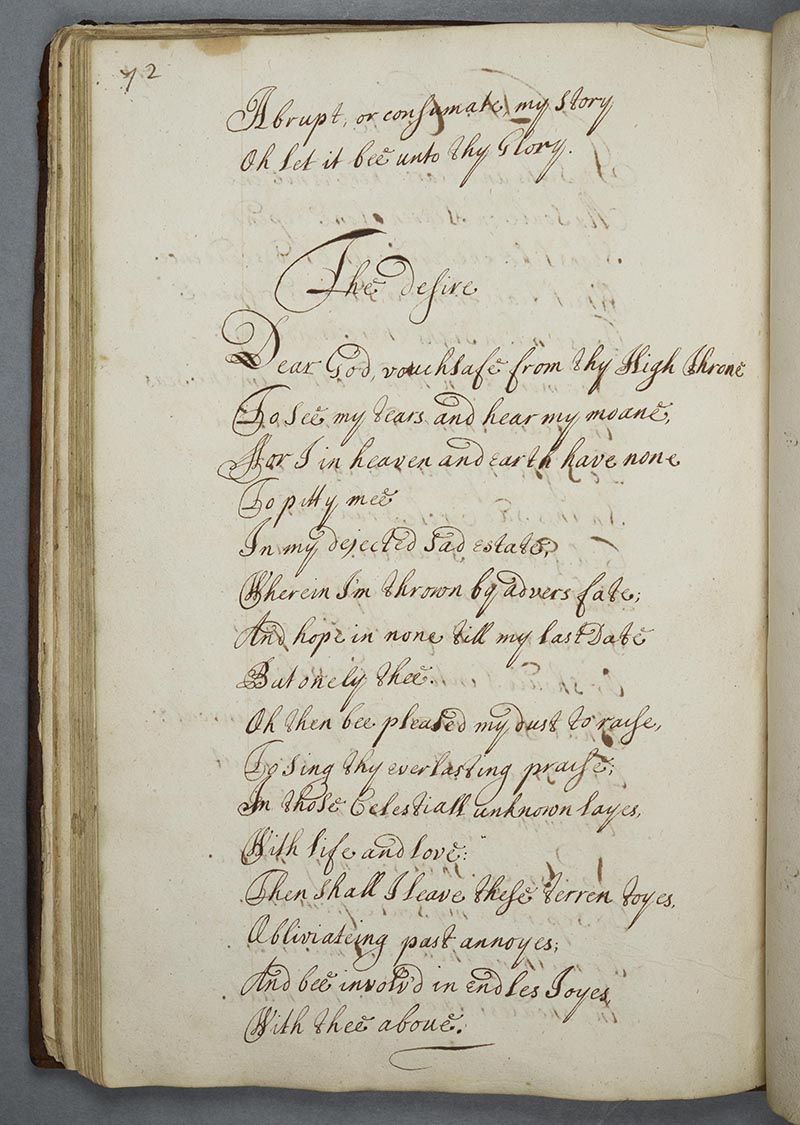 72
Abrupt, or consumate, my story
Oh let it bee unto thy Glory.
The desire
Dear God, vouchsafe from thy High Throne
To see my tears and hear my moane,
For I in heaven and earth have none
To pitty mee
In my dejected sad estate,
Wherein I'm thrown by advers fate;
And hope in none till my last Date
But onely thee.
Oh then bee pleased my dust to raise,
To sing thy everlasting praise;
In those Celestiall unknown layes,
With life and love:
Then shall I leave these terren toyes,
Obliviateing past annoyes;
And bee involv'd in endles Joyes
With thee aboue.